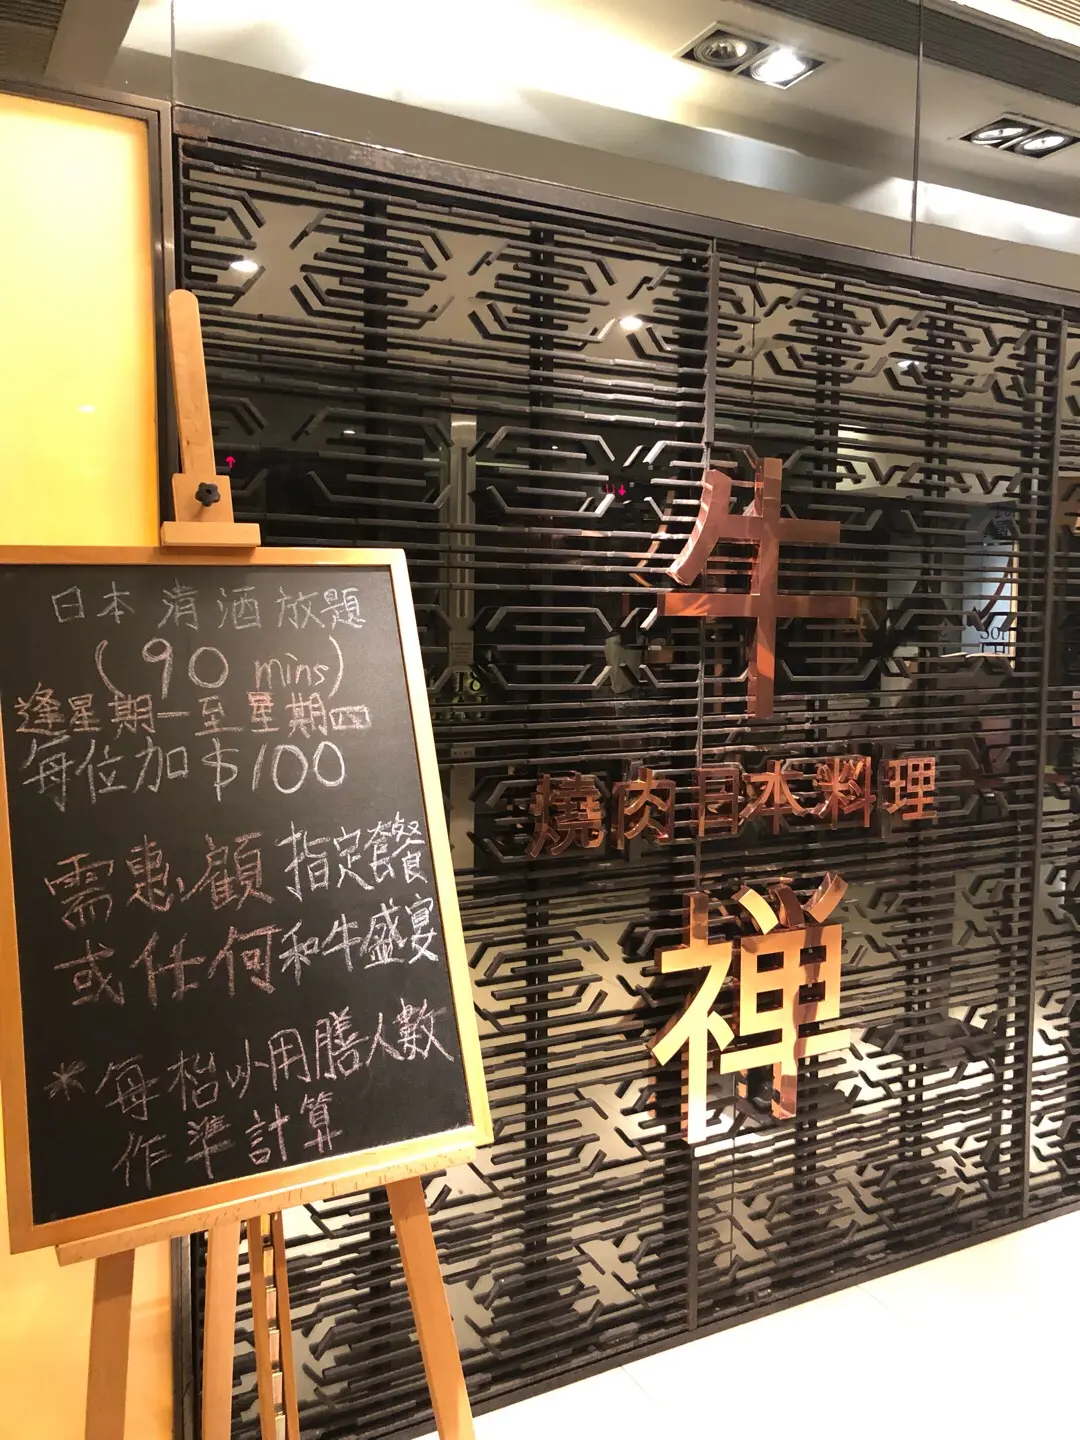 日本清酒放題
(90 mins)
逢星期一至星期四
每位加$100
需惠顧指定套餐
或任何和牛盛宴
*每枱以用膳人數
作準計算
牛
燒肉日本料理
禅